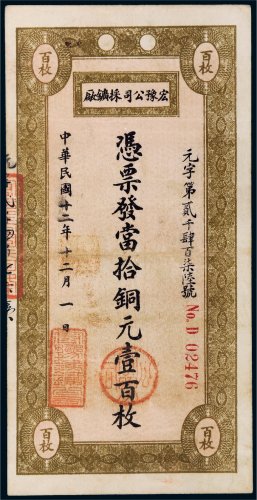 百枚
百枚
宏豫公司採鑛厰
元字第貳千肆百柒陸號
No. D 02476
憑票發當拾銅元壹百枚
中華民國廿二年十二月一日
百枚
百枚